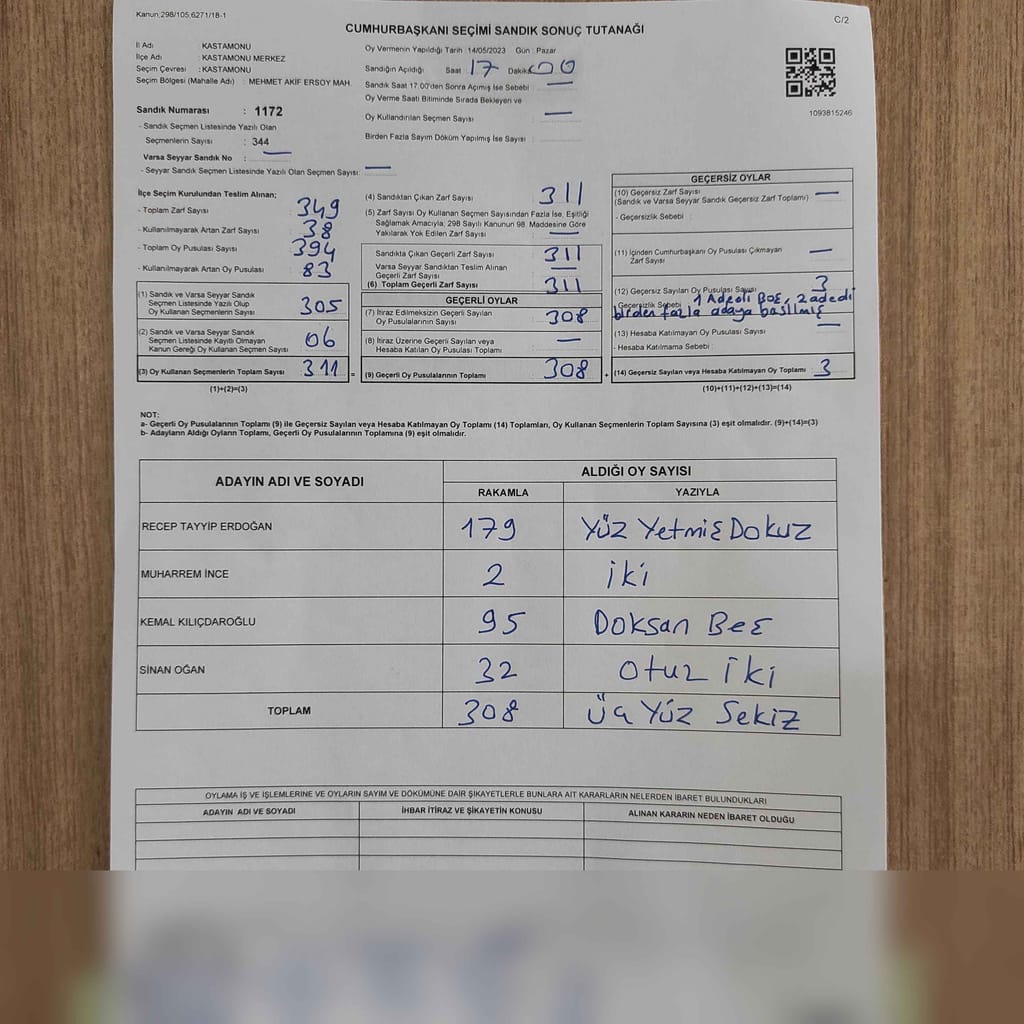 Kanun:298/105,6271/18-1
C/2
CUMHURBAŞKANI SEÇİMİ SANDIK SONUÇ TUTANAĞI
İl Adı : KASTAMONU
İlçe Adı : KASTAMONU MERKEZ
Seçim Çevresi : KASTAMONU
Seçim Bölgesi (Mahalle Adı) : MEHMET AKİF ERSOY MAH.
Sandık Numarası : 1172
- Sandık Seçmen Listesinde Yazılı Olan
Seçmenlerin Sayısı : 344
Varsa Seyyar Sandık No : —
- Seyyar Sandık Seçmen Listesinde Yazılı Olan Seçmen Sayısı: —
Oy Vermenin Yapıldığı Tarih :14/05/2023 Gün : Pazar
Sandığın Açıldığı Saat 17 Dakika 00
Sandık Saat 17.00'den Sonra Açılmış İse Sebebi : —
Oy Verme Saati Bitiminde Sırada Bekleyen ve
Oy Kullandırılan Seçmen Sayısı —
Birden Fazla Sayım Döküm Yapılmış İse Sayısı :
1093815246
İlçe Seçim Kurulundan Teslim Alınan;
- Toplam Zarf Sayısı 349
- Kullanılmayarak Artan Zarf Sayısı 38
- Toplam Oy Pusulası 394
- Kullanılmayarak Artan Oy Pusulası 83
(1) Sandık ve Varsa Seyyar Sandık
Seçmen Listesinde Yazılı Olup
Oy Kullanan Seçmenlerin Sayısı 305
(2) Sandık ve Varsa Seyyar Sandık
Seçmen Listesinde Kayıtlı Olmayan
Kanun Gereği Oy Kullanan Seçmen Sayısı 06
(3) Oy Kullanan Seçmenlerin Toplam Sayısı 311 =
(1)+(2)=(3)
(4) Sandıktan Çıkan Zarf Sayısı 311
(5) Zarf Sayısı Oy Kullanan Seçmen Sayısından Fazla İse, Eşitliği
Sağlamak Amacıyla; 298 Sayılı Kanunun 98. Maddesine Göre
Yakılarak Yok Edilen Zarf Sayısı —
Sandıkta Çıkan Geçerli Zarf Sayısı 311
Varsa Seyyar Sandıktan Teslim Alınan
Geçerli Zarf Sayısı —
(6) Toplam Geçerli Zarf Sayısı 311
GEÇERLİ OYLAR
(7) İtiraz Edilmeksizin Geçerli Sayılan
Oy Pusulalarının Sayısı 308
(8) İtiraz Üzerine Geçerli Sayılan veya
Hesaba Katılan Oy Pusulası Toplamı —
(9) Geçerli Oy Pusulalarının Toplamı 308 +
GEÇERSİZ OYLAR
(10) Geçersiz Zarf Sayısı —
(Sandık ve Varsa Seyyar Sandık Geçersiz Zarf Toplamı)
- Geçersizlik Sebebi :
(11) İçinden Cumhurbaşkanı Oy Pusulası Çıkmayan
Zarf Sayısı —
(12) Geçersiz Sayılan Oy Pusulası Sayısı 3
- Geçersizlik Sebebi 1 Adedi Boş, 2 adedi
birden fazla adaya basılmış
(13) Hesaba Katılmayan Oy Pusulası Sayısı —
- Hesaba Katılmama Sebebi :
(14) Geçersiz Sayılan veya Hesaba Katılmayan Oy Toplamı 3
(10)+(11)+(12)+(13)=(14)
NOT:
a- Geçerli Oy Pusulalarının Toplamı (9) ile Geçersiz Sayılan veya Hesaba Katılmayan Oy Toplamı (14) Toplamları, Oy Kullanan Seçmenlerin Toplam Sayısına (3) eşit olmalıdır. (9)+(14)=(3)
b- Adayların Aldığı Oyların Toplamı, Geçerli Oy Pusulalarının Toplamına (9) eşit olmalıdır.
ADAYIN ADI VE SOYADI ALDIĞI OY SAYISI
RAKAMLA YAZIYLA
RECEP TAYYİP ERDOĞAN 179 Yüz Yetmiş Dokuz
MUHARREM İNCE 2 iki
KEMAL KILIÇDAROĞLU 95 Doksan Beş
SİNAN OĞAN 32 otuz iki
TOPLAM 308 Üç Yüz Sekiz
OYLAMA İŞ VE İŞLEMLERİNE VE OYLARIN SAYIM VE DÖKÜMÜNE DAİR ŞİKAYETLERLE BUNLARA AİT KARARLARIN NELERDEN İBARET BULUNDUKLARI
ADAYIN ADI VE SOYADI İHBAR İTİRAZ VE ŞİKAYETİN KONUSU ALINAN KARARIN NEDEN İBARET OLDUĞU